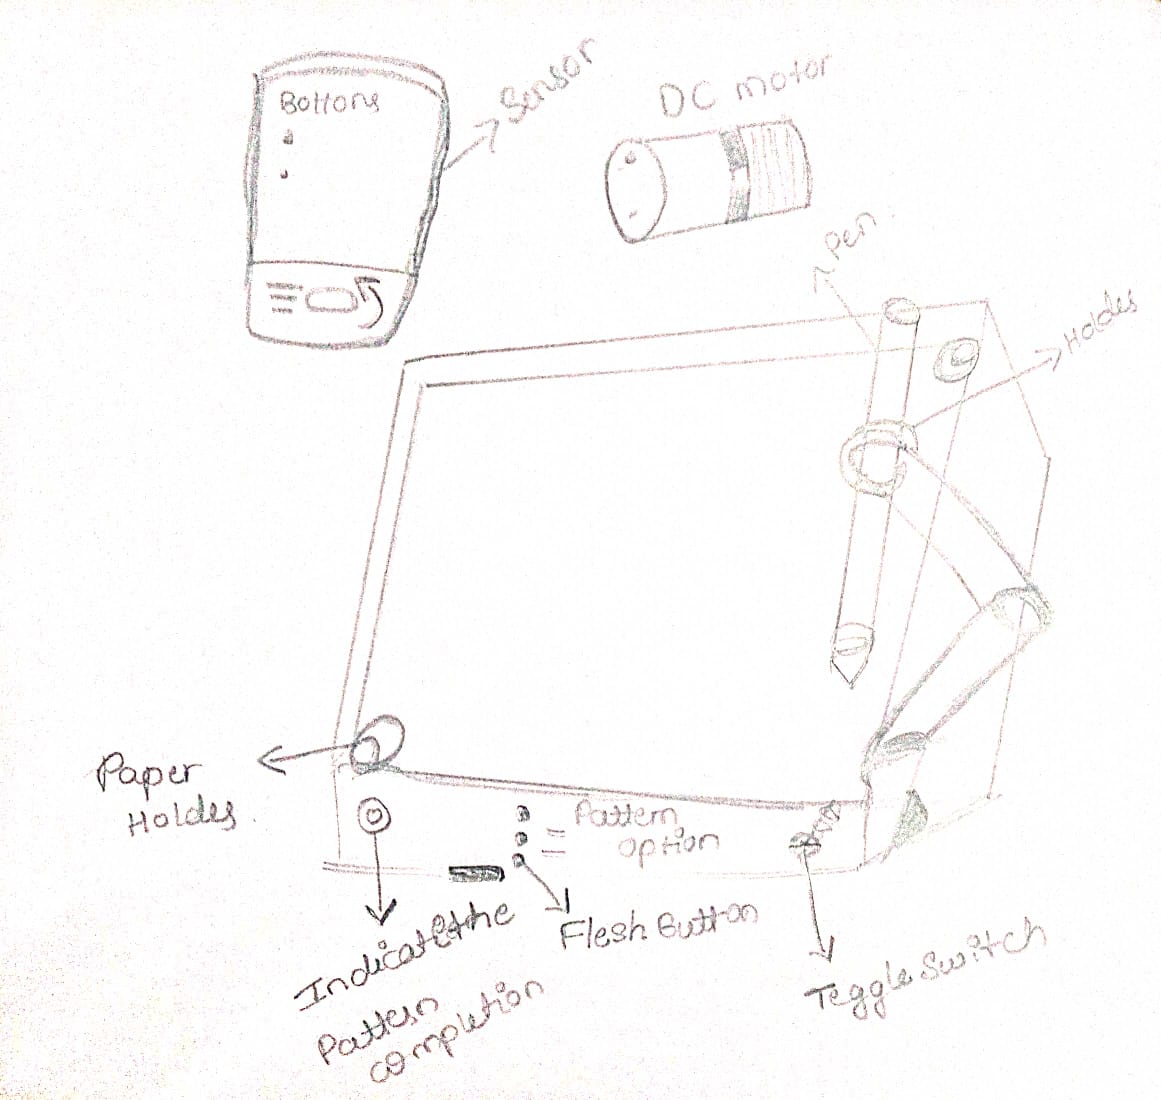 Bottons
Sensor
DC motor
Pen
Holdes
Paper
Holdes.
Pattern
option
Flesh Button
Indicate the
Pattern
completion
Teggle Switch